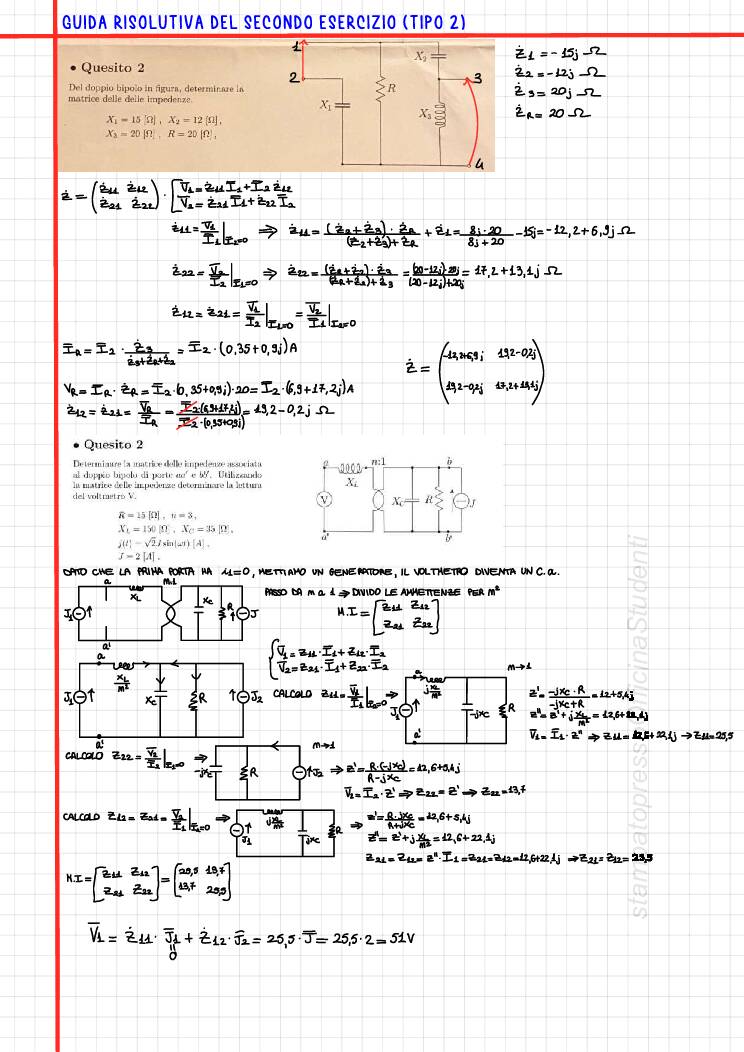 GUIDA RISOLUTIVA DEL SECONDO ESERCIZIO (TIPO 2)
• Quesito 2
Del doppio bipolo in figura, determinare la
matrice delle delle impedenze.
X₁ = 15 [Ω] , X₂ = 12 [Ω] ,
X₃ = 20 [Ω] , R = 20 [Ω] ,
1
2
X₁
R
X₂
3
X₃
4
Ż1 = -15j Ω
Ż2 = -12j Ω
Ż3 = 20j Ω
ŻR = 20 Ω
Ż = (Ż11 Ż12 Ż21 Ż22) · [V1 = Ż11 I1 + I2 Ż12
V2 = Ż21 I1 + Ż22 I2
Ż11 = V1/I1 |I2=0 ⇒ Ż11 = (Ż2+Ż3)·ŻR/(Ż2+Ż3)+ŻR + Ż1 = 8j·20/8j+20 - 15j = -12,2+6,9j Ω
Ż22 = V2/I2 |I1=0 ⇒ Ż22 = (ŻR+Ż2)·Ż3/(ŻR+Ż2)+Ż3 = (20-12j)·20j/(20-12j)+20j = 17,2+13,1j Ω
Ż12 = Ż21 = V1/I2 |I1=0 = V2/I1 |I2=0
IR = I2 · Ż3/Ż3+ŻR+Ż2 = I2 · (0,35+0,9j) A
Ż = (-12,2+6,9j 19,2-0,2j
19,2-0,2j 17,2+13,1j)
VR = IR · ŻR = I2 · (0,35+0,9j)·20 = I2 · (6,9+17,2j) A
Ż12 = Ż21 = VR/IR = I2·(6,9+17,2j)/I2·(0,35+0,9j) = 19,2-0,2j Ω
• Quesito 2
Determinare la matrice delle impedenze associata
al doppio bipolo di porte aa′ e bb′. Utilizzando
la matrice delle impedenze determinare la lettura
del voltmetro V.
R = 15 [Ω] , n = 3 ,
X_L = 150 [Ω] , X_C = 35 [Ω] ,
j(t) = √2J sin(ωt) [A] ,
J = 2 [A] ,
a
X_L
n:1
b
V
X_C
R
J
a′
b′
DATO CHE LA PRIMA PORTA HA i1=0, METTIAMO UN GENERATORE, IL VOLTMETRO DIVENTA UN C.a.
a
XL
m:1
J1
XC
R
J
a'
PASSO DA m a 1 ⇒ DIVIDO LE AMMETTENZE PER m²
M.I = [Z11 Z12
Z21 Z22]
a
XL/m²
J1
XC
R
J2
a'
{V1 = Z11·I1 + Z12·I2
V2 = Z21·I1 + Z22·I2
CALCOLO Z11 = V1/I1 |I2=0 ⇒
a
jXL/m²
m→1
J1
-jXC
R
a'
Z' = -jXC·R/-jXC+R = 12+5,4j
Z'' = Z' + jXL/m² = 12,6+22,1j
V1 = I1·Z'' ⇒ Z11 = 12,6+22,1j → Z11 = 25,5
CALCOLO Z22 = V2/I2 |I1=0 ⇒
m→1
-jXC
R
J2
⇒ Z' = R·(-jXC)/R-jXC = 12,6+5,4j
V2 = I2·Z' ⇒ Z22 = Z' ⇒ Z22 = 13,7
CALCOLO Z12 = Z21 = V2/I1 |I2=0 ⇒
jXL/m²
J1
jXC
R
⇒ Z' = R·jXC/R+jXC = 12,6+5,4j
Z'' = Z' + jXL/m² = 12,6+22,1j
Z21 = Z12 = Z''·I1 = Z21 = Z12 = 12,6+22,1j ⇒ Z21 = Z12 = 25,5
M.I = [Z11 Z12 Z21 Z22] = [25,5 13,7
13,7 25,5]
V1 = Ż11 · J1 + Ż12 · J2 = 25,5 · J = 25,5 · 2 = 51V
0